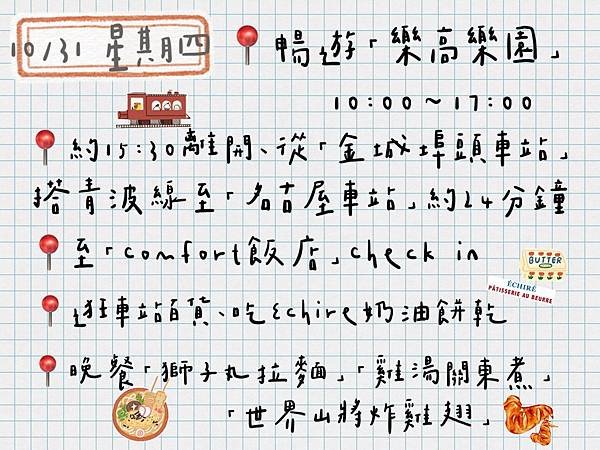 10/31 星期四
暢遊「樂高樂園」
10:00~17:00
約15:30離開、從「金城埠頭車站」
搭青波線至「名古屋車站」約24分鐘
至「comfort飯店」check in
BUTTER
ÉCHIRÉ
PÂTISSERIE AU BEURRE
逛車站百貨、吃Échire奶油餅乾
晚餐「獅子丸拉麵」「雞湯關東煮」
「世界山將炸雞翅」